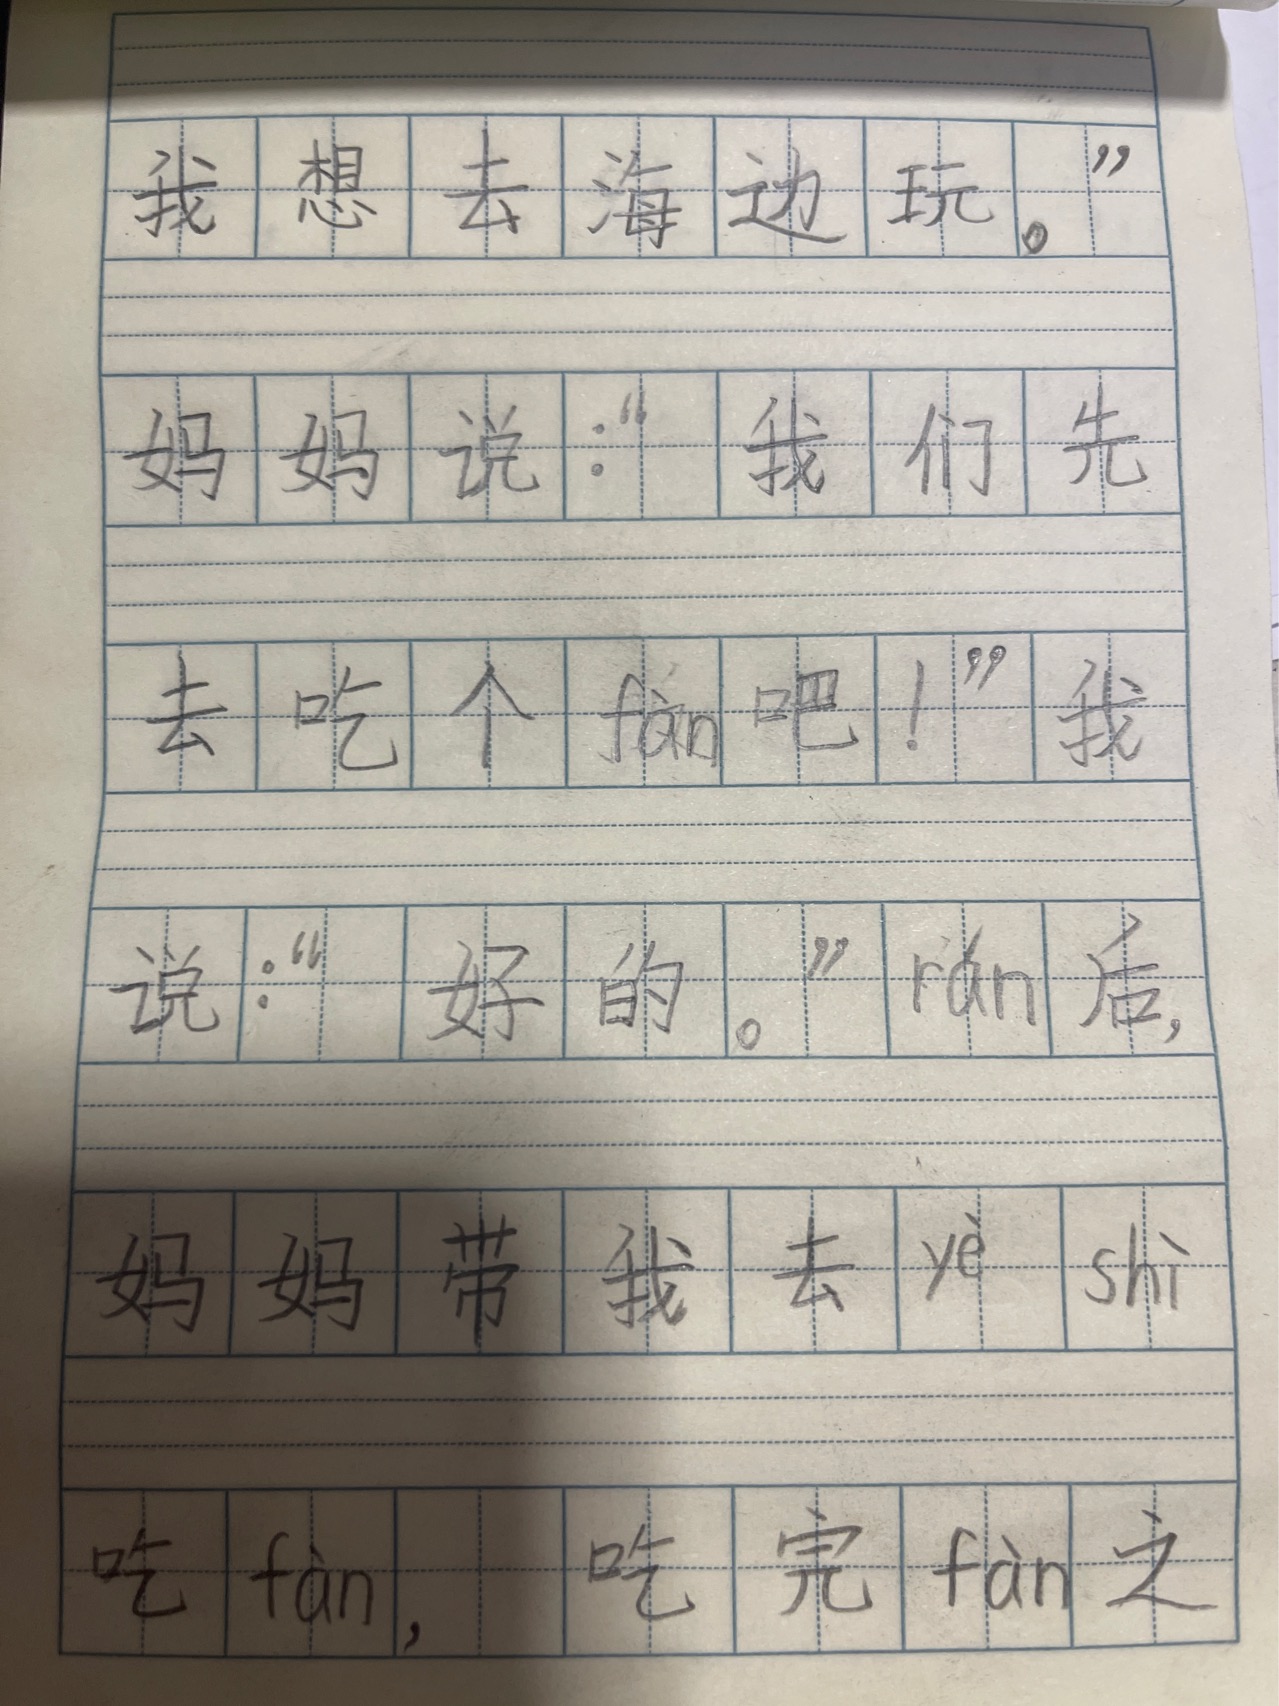 我想去海边玩。”
妈妈说：“我们先
去吃个fàn吧！”我
说：“好的。”rán后，
妈妈带我去yè shì
吃fàn，吃完fàn之